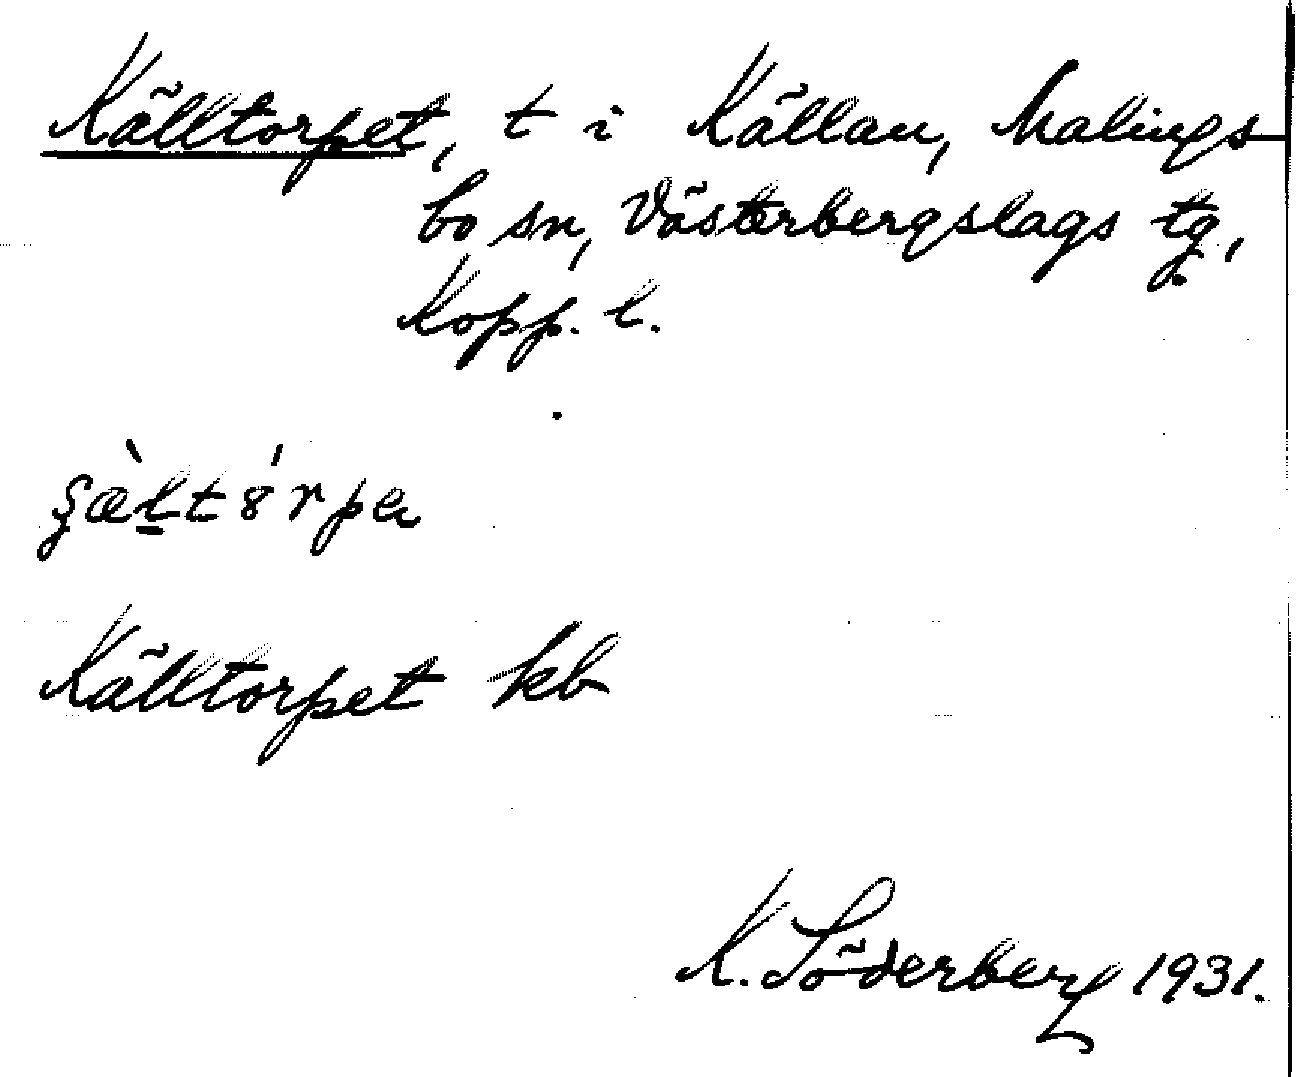 Källtorpet, t i Källan, Malings-
bo sn, Västerbergslags tg,
Kopp. l.
Källtorpet kb
K. Söderberg 1931.